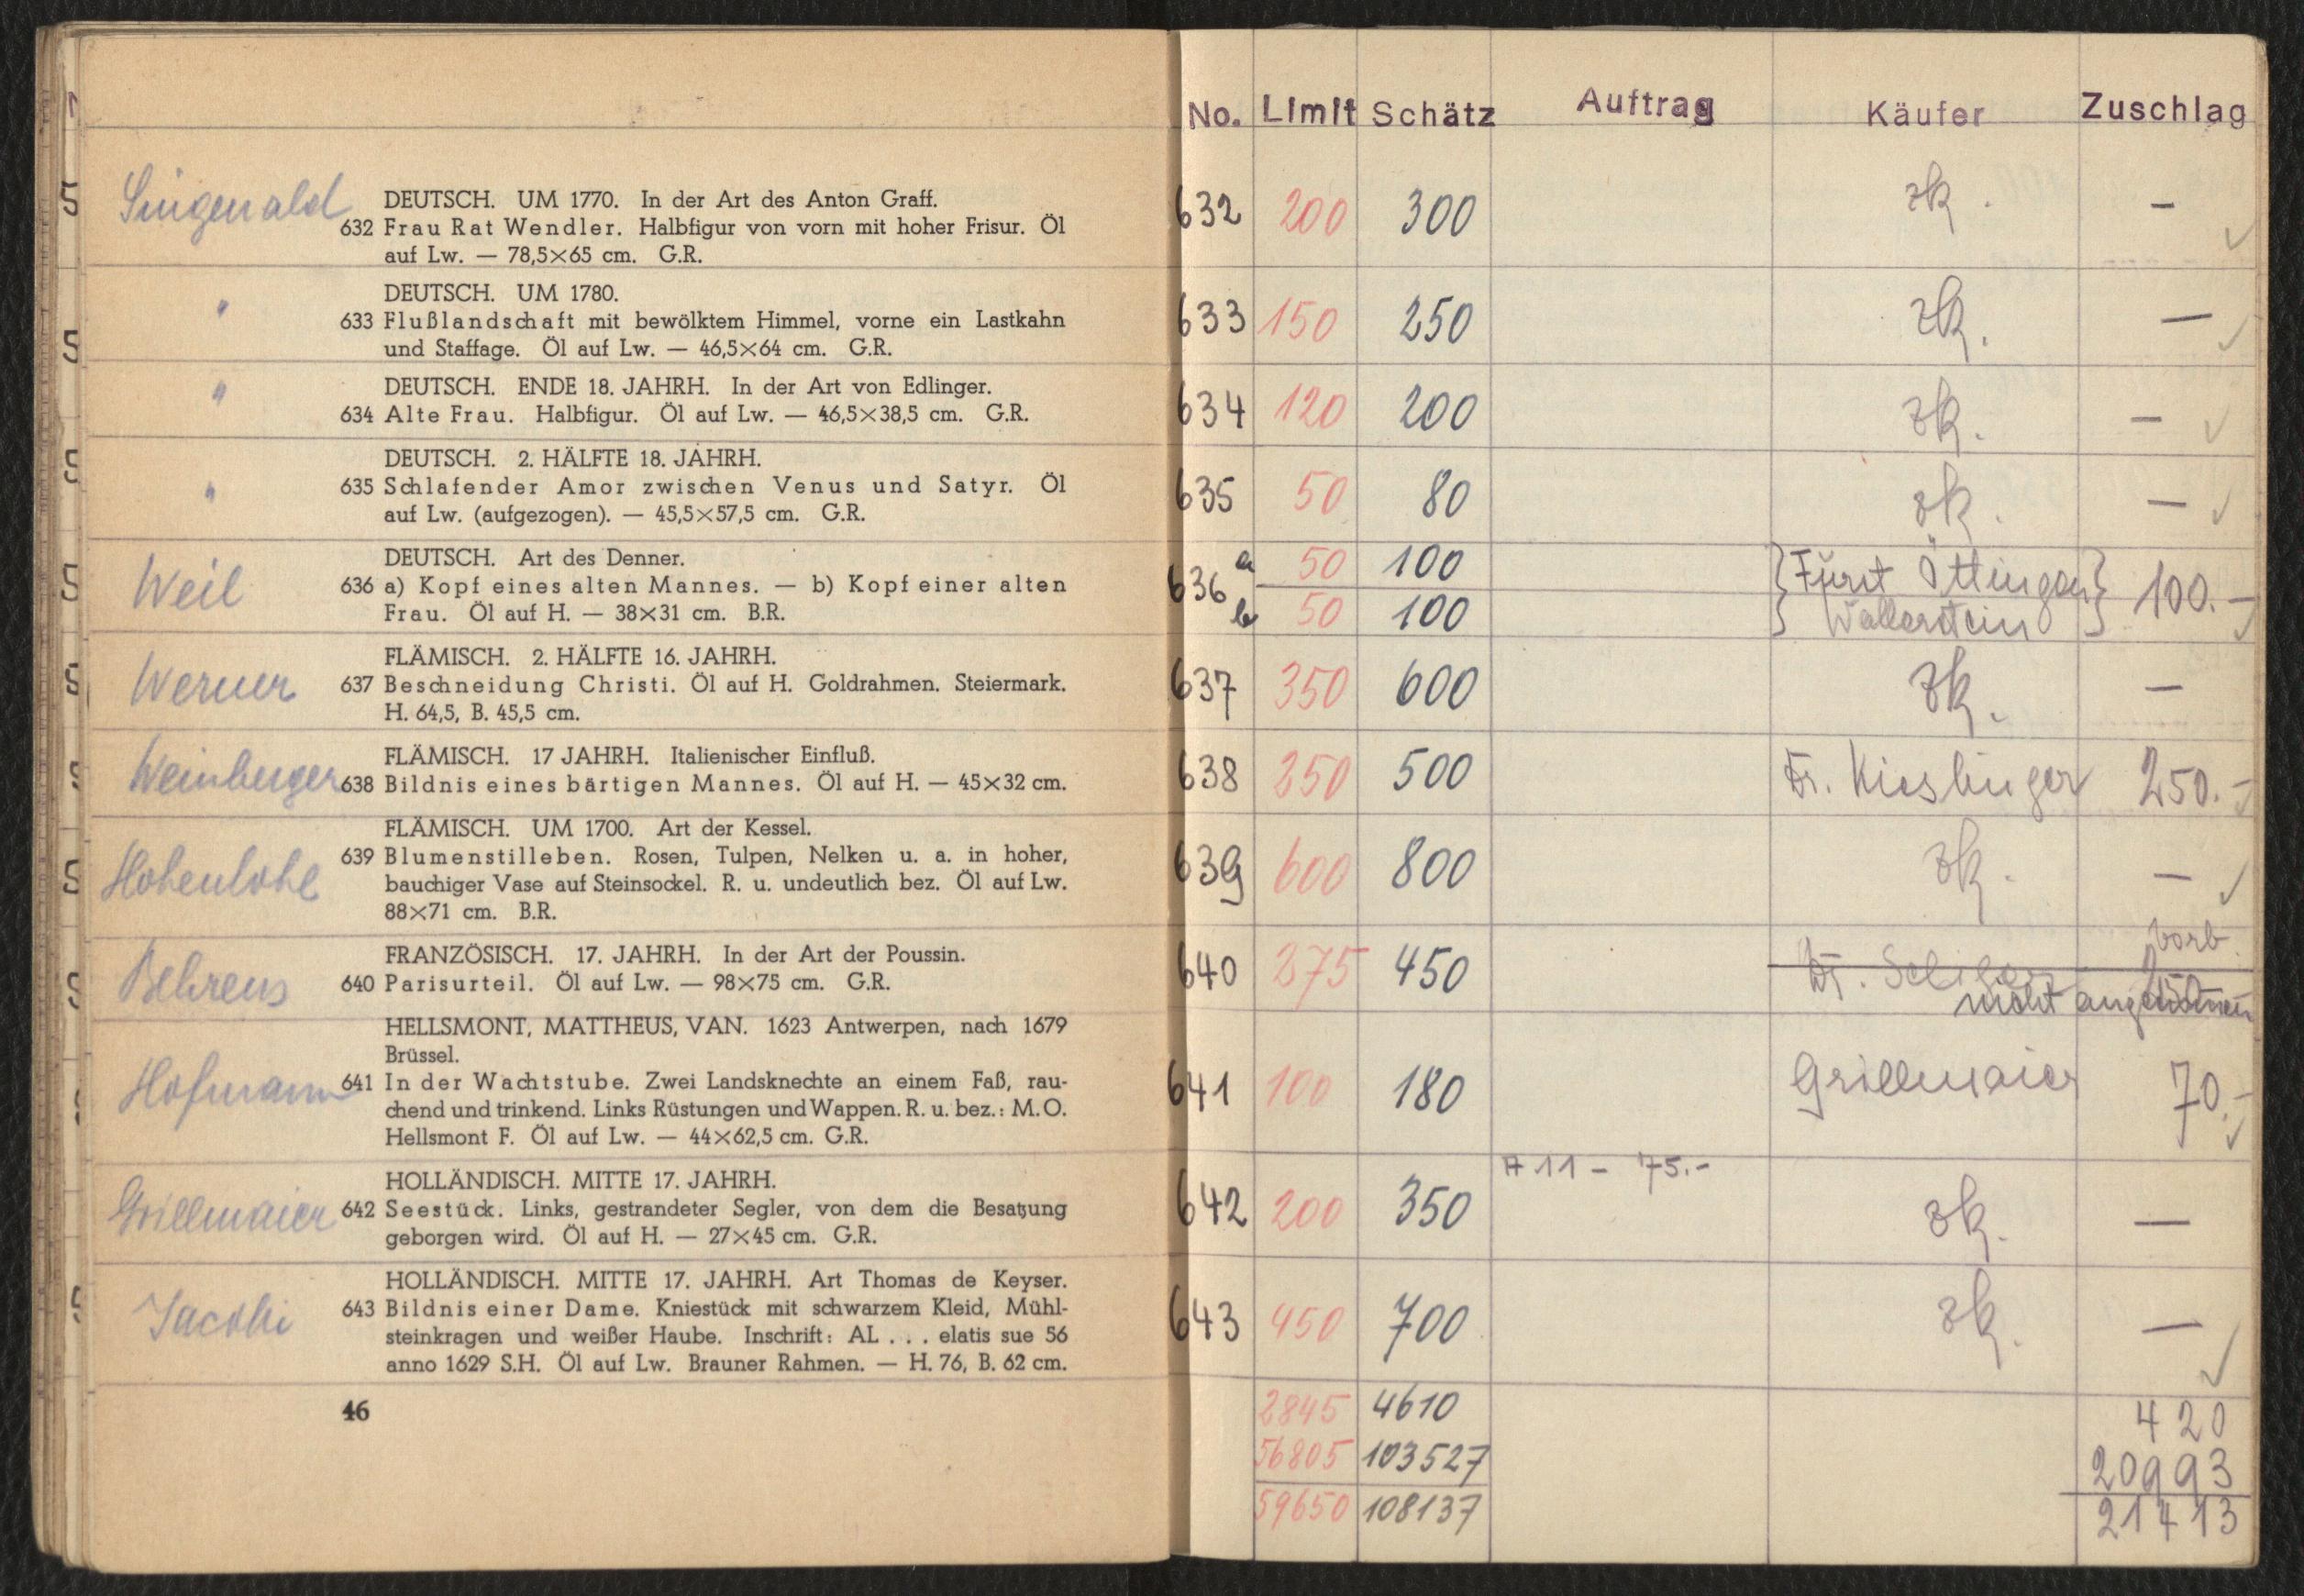 Singenald
DEUTSCH. UM 1770. In der Art des Anton Graff.
632 Frau Rat Wendler. Halbfigur von vorn mit hoher Frisur. Öl
auf Lw. — 78,5×65 cm. G.R.
"
DEUTSCH. UM 1780.
633 Flußlandschaft mit bewölktem Himmel, vorne ein Lastkahn
und Staffage. Öl auf Lw. — 46,5×64 cm. G.R.
"
DEUTSCH. ENDE 18. JAHRH. In der Art von Edlinger.
634 Alte Frau. Halbfigur. Öl auf Lw. — 46,5×38,5 cm. G.R.
"
DEUTSCH. 2. HÄLFTE 18. JAHRH.
635 Schlafender Amor zwischen Venus und Satyr. Öl
auf Lw. (aufgezogen). — 45,5×57,5 cm. G.R.
Weil
DEUTSCH. Art des Denner.
636 a) Kopf eines alten Mannes. — b) Kopf einer alten
Frau. Öl auf H. — 38×31 cm. B.R.
Werner
FLÄMISCH. 2. HÄLFTE 16. JAHRH.
637 Beschneidung Christi. Öl auf H. Goldrahmen. Steiermark.
H. 64,5, B. 45,5 cm.
Weinberger
FLÄMISCH. 17 JAHRH. Italienischer Einfluß.
638 Bildnis eines bärtigen Mannes. Öl auf H. — 45×32 cm.
Hohenlohe
FLÄMISCH. UM 1700. Art der Kessel.
639 Blumenstilleben. Rosen, Tulpen, Nelken u. a. in hoher,
bauchiger Vase auf Steinsockel. R. u. undeutlich bez. Öl auf Lw.
88×71 cm. B.R.
Behrens
FRANZÖSISCH. 17. JAHRH. In der Art der Poussin.
640 Parisurteil. Öl auf Lw. — 98×75 cm. G.R.
Hofmann
HELLSMONT, MATTHEUS, VAN. 1623 Antwerpen, nach 1679
Brüssel.
641 In der Wachtstube. Zwei Landsknechte an einem Faß, rau-
chend und trinkend. Links Rüstungen und Wappen. R. u. bez.: M. O.
Hellsmont F. Öl auf Lw. — 44×62,5 cm. G.R.
Grillmaier
HOLLÄNDISCH. MITTE 17. JAHRH.
642 Seestück. Links, gestrandeter Segler, von dem die Besatzung
geborgen wird. Öl auf H. — 27×45 cm. G.R.
Jacobi
HOLLÄNDISCH. MITTE 17. JAHRH. Art Thomas de Keyser.
643 Bildnis einer Dame. Kniestück mit schwarzem Kleid, Mühl-
steinkragen und weißer Haube. Inschrift: AL . . . elatis sue 56
anno 1629 S.H. Öl auf Lw. Brauner Rahmen. — H. 76, B. 62 cm.
46
No. Limit Schätz Auftrag Käufer Zuschlag
632 200 300 zk. —
633 150 250 zk. —
634 120 200 zk. —
635 50 80 zk. —
636 a 50 100 Fürst Öttingen
b 50 100 Wallerstein 100.—
637 350 600 zk. —
638 250 500 Dr. Kieslinger 250.—
639 600 800 zk. —
vorb.
640 275 450 Dr.
nicht angenommen
641 100 180 Grillmaier 70.—
A 11 – 75.–
642 200 350 zk. —
643 450 700 zk. —
2845 4610 420
56805 103527 20993
59650 108137 21413